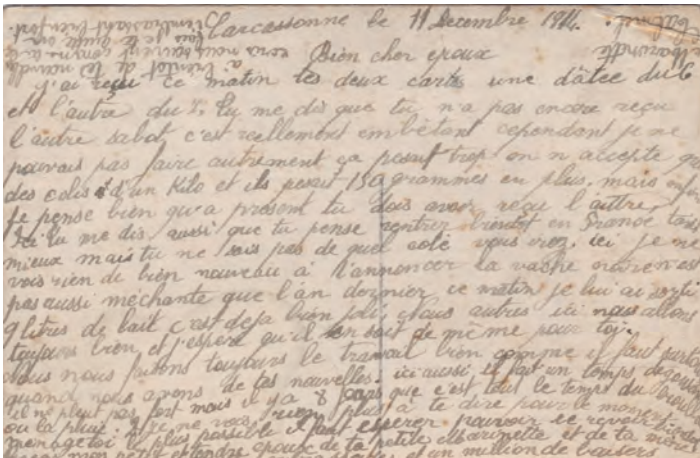 Carcassonne le 11 Decembre 1914.
Bien cher epoux
J. ai reçu ce matin tes deux carte une dâteé du 6
et l'autre du 7. tu me dis que tu n a pas encore reçu
l'autre sabot c'est reellement embétant cependant je ne
pouvais pas faire autrement ça pesait trop on n accepte que
des colis d'un Kilo et ils pesait 150 grammes en plus, mais enfin
je pense bien qu'a présent tu dois avoir reçu l'auttre,
Ici tu me dis aussi que tu pense rentrer bientot en France tant
mieux mais tu ne sais pas de quel coté vous irez. ici je ne
vois rien de bien nouveau à t'annoncer la vache noire n'est
pas aussi mechante que l'an dernier ce matin je lui ai sorti
9 litres de lait c'est deja bien joli, Nous autres ici nous allons
toujours bien et j'espére qu'il en soit de mème pour toi.
Nous nous faisons toujours le travail bien comme il faut surtout
quand nous avons de tes nouvelles. ici aussi il fait un temps
il ne pleut pas fort mais il y a 8 jours que c'est tous le temps du
ou la pluie. Je ne vois rien plus à te dire pour le moment
menage toi le plus possible il faut esperer pouvoir se revoir
mon petit et tendre epoux de ta petite et de ta
et un million de baisers
a bientot de tes nouvelles